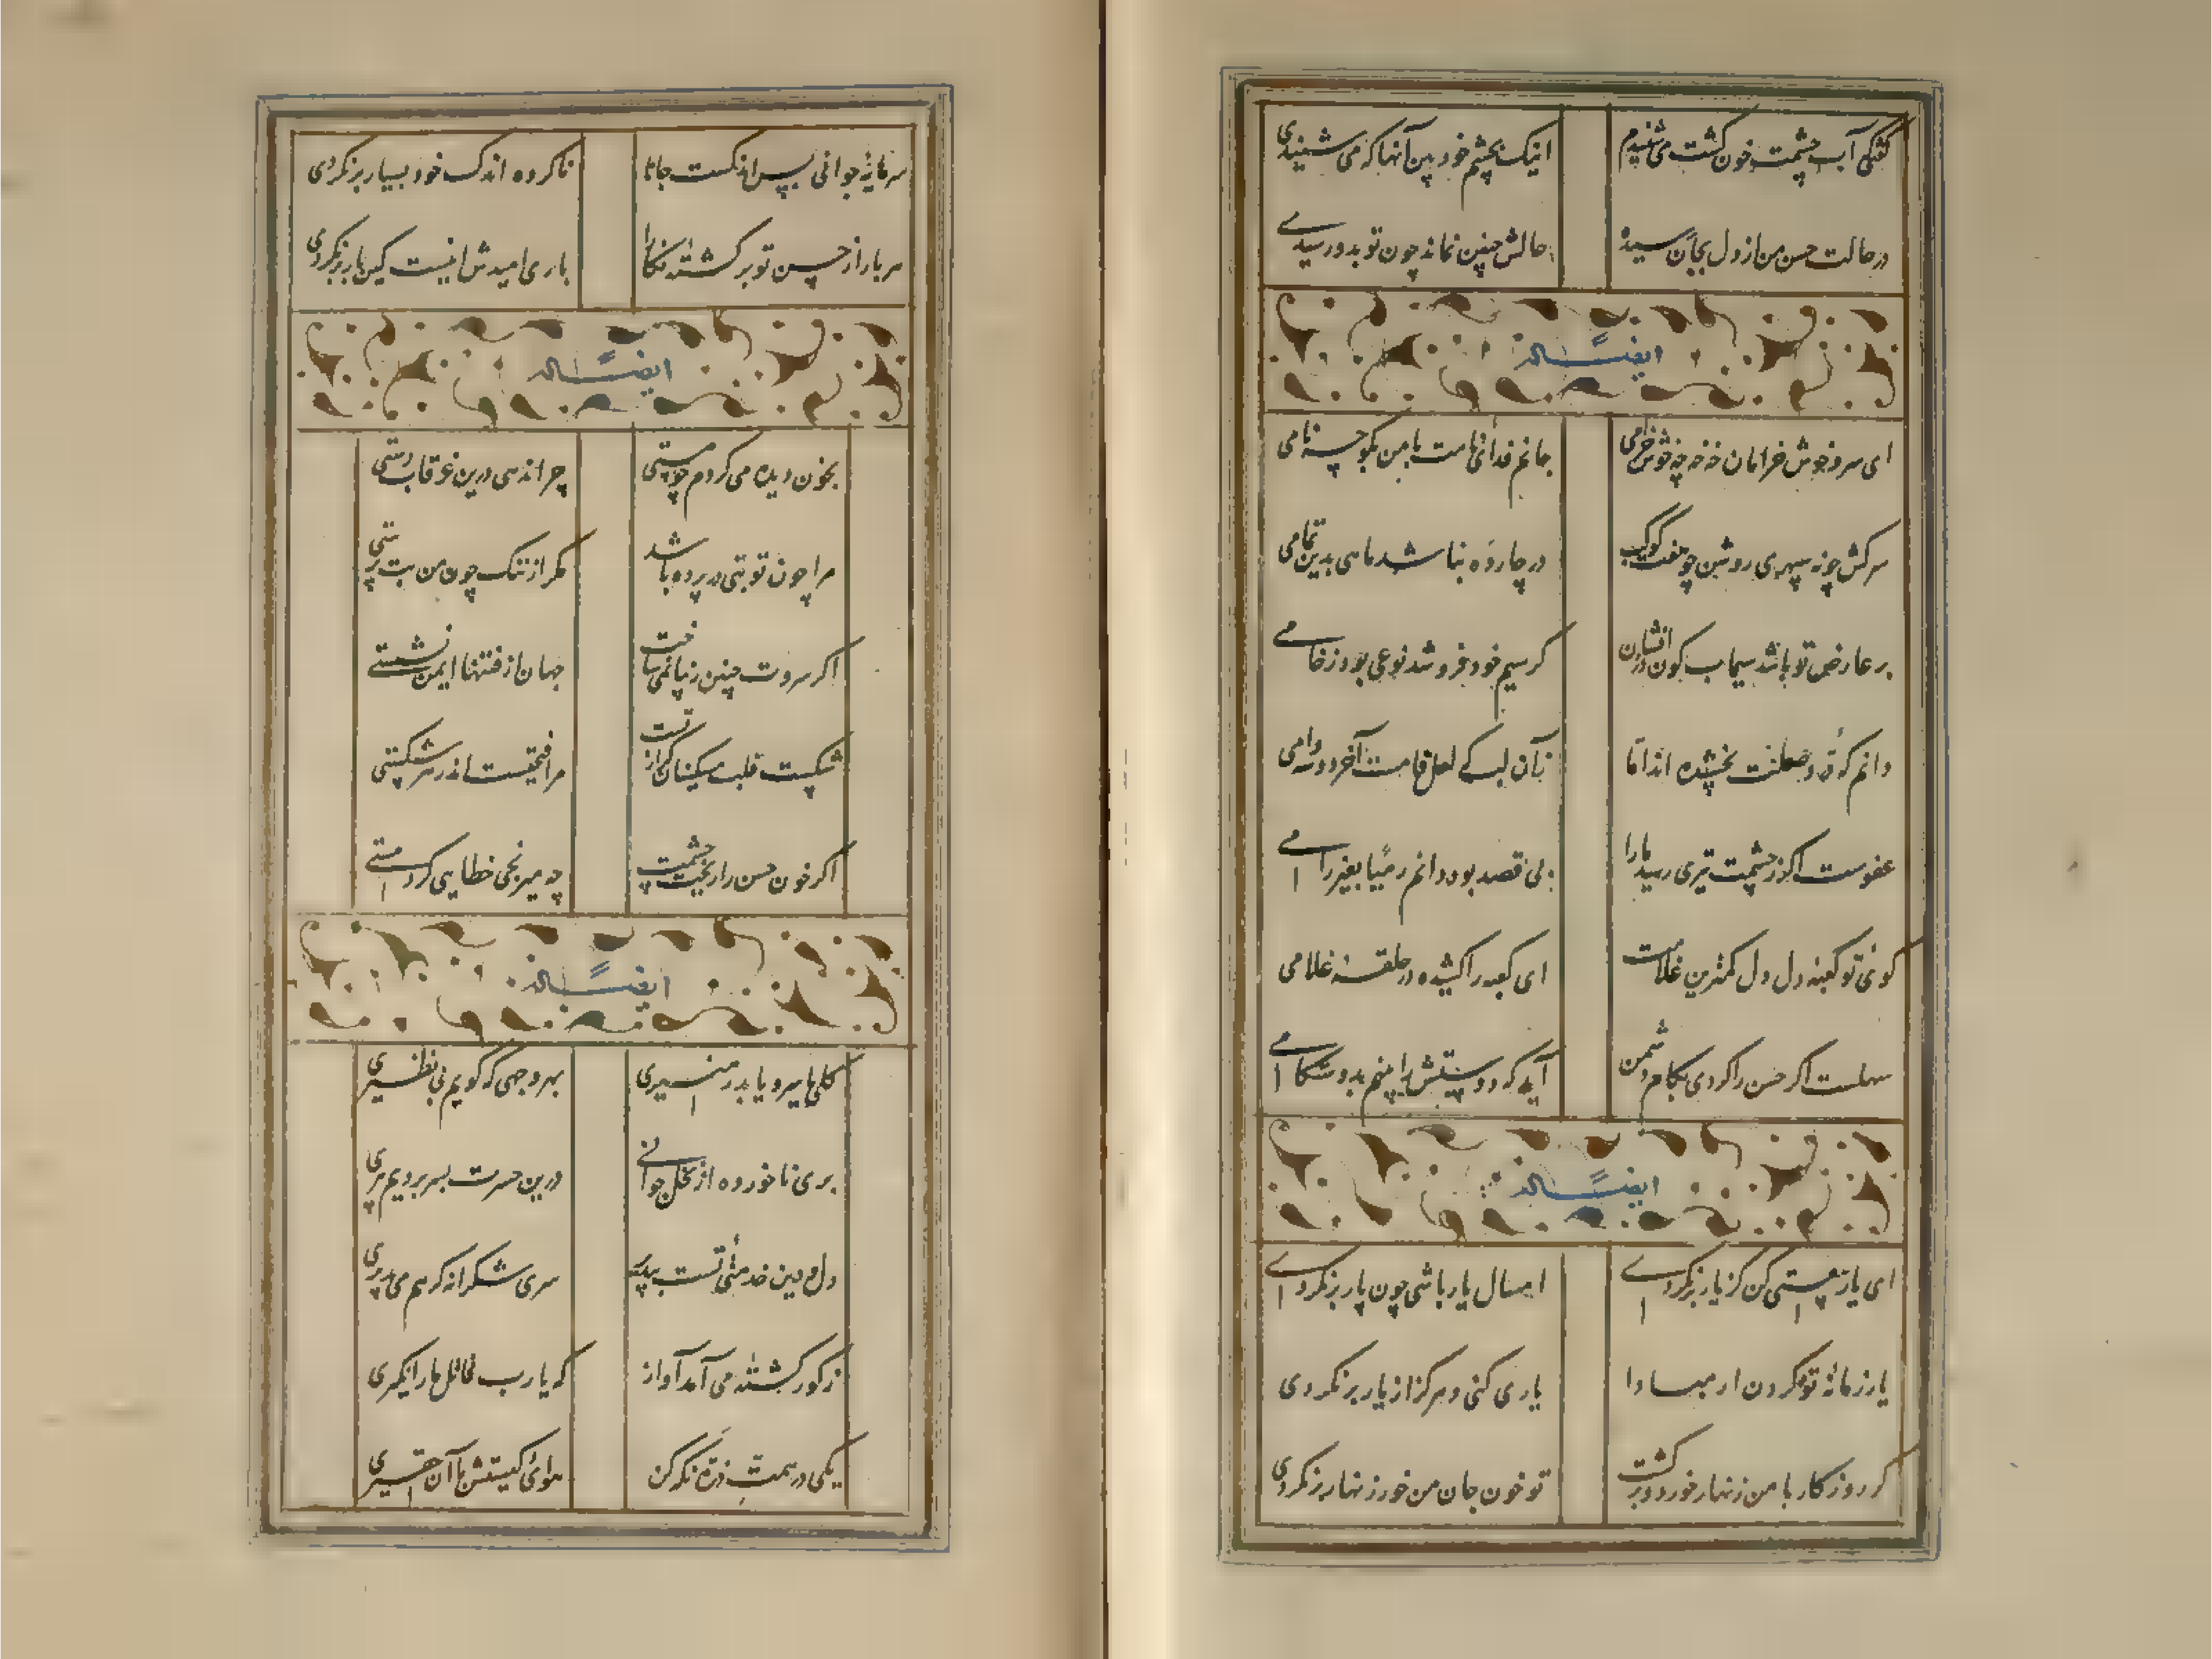 گفتی که آب چشمت خون گشت می‌شنیدم
اینک بچشم خود بین آنها که می‌شنیدی
در حالت حسن من از دل بجان رسیده
حالش چنین نماند چون تو بدو رسیدی
ایضاً له
ای سرو خوش خرامان خه خه چه خوش خرامی
جانم فدای نامت با من بگو چه نامی
سرکش چو نه سپهری روشن چو هفت کوکب
در چارده نباشد ماهی بدین تمامی
بر عارض تو باشد سیماب کون در افشان
گر سیم خود فروشد نوعی بود ز خامی
دانم که قد وصلت بخشنده اند اما
زان لب که لعل فامست آخر دو سه وامی
عفوست اگر ز چشمت تیری رسید ما را
بی قصد بود دانم رمیا بغیر رامی
گوئی تو کعبه دل دل کمترین غلامت
ای کعبه را کشیده در حلقه غلامی
سهلست اگر حسن را کردی بکام دشمن
آید که دوستش را بینم بدوستکامی
ایضاً له
ای یار نیستی کن کز یار برنگردی
امسال یار باشی چون پار برنگردی
یار زمانه تو گردون ار مبادا
یاری کنی و هرگز از یار برنگردی
گر روزگار با من زنهار خورد و برگشت
تو خون جان من خور زنهار برنگردی
سرمایه جوانی بس اندکست جانا
ناکرده اندک خود بسیار برنگردی
هر بار از حسن تو برگشته نگارا
باری امیدش اینست کین بار برنگردی
ایضاً له
بخون دیده می‌گردم چو مستی
چرا ندهی درین غرقاب دستی
مرا چون تو بتی در پرده باشد
مگر از ننگ چون من بت پرستی
اگر سروت چنین زیبا نمی‌خاست
جهان از فتنها ایمن نشستی
شکست قلب مسکینان گر از تست
مرا فتحیست اندر هر شکستی
اگر خون حسن را ریخت چشمت
چه میرنجی خطایی کرد مستی
ایضاً له
گلی یا سرو یا بدر منیری
بهر وجهی که گویم بی نظیری
بری ناخورده از نخل جوانی
درین حسرت بسر بردیم پیری
دل و دین خدمتی تست بپذیر
سری شکرانه گر هم می‌پذیری
ز گور کشته می‌آمد آواز
که یا رب قاتل ما را نگیری
یکی در همت ذره نگه کن
هوای کیستش با آن حقیری